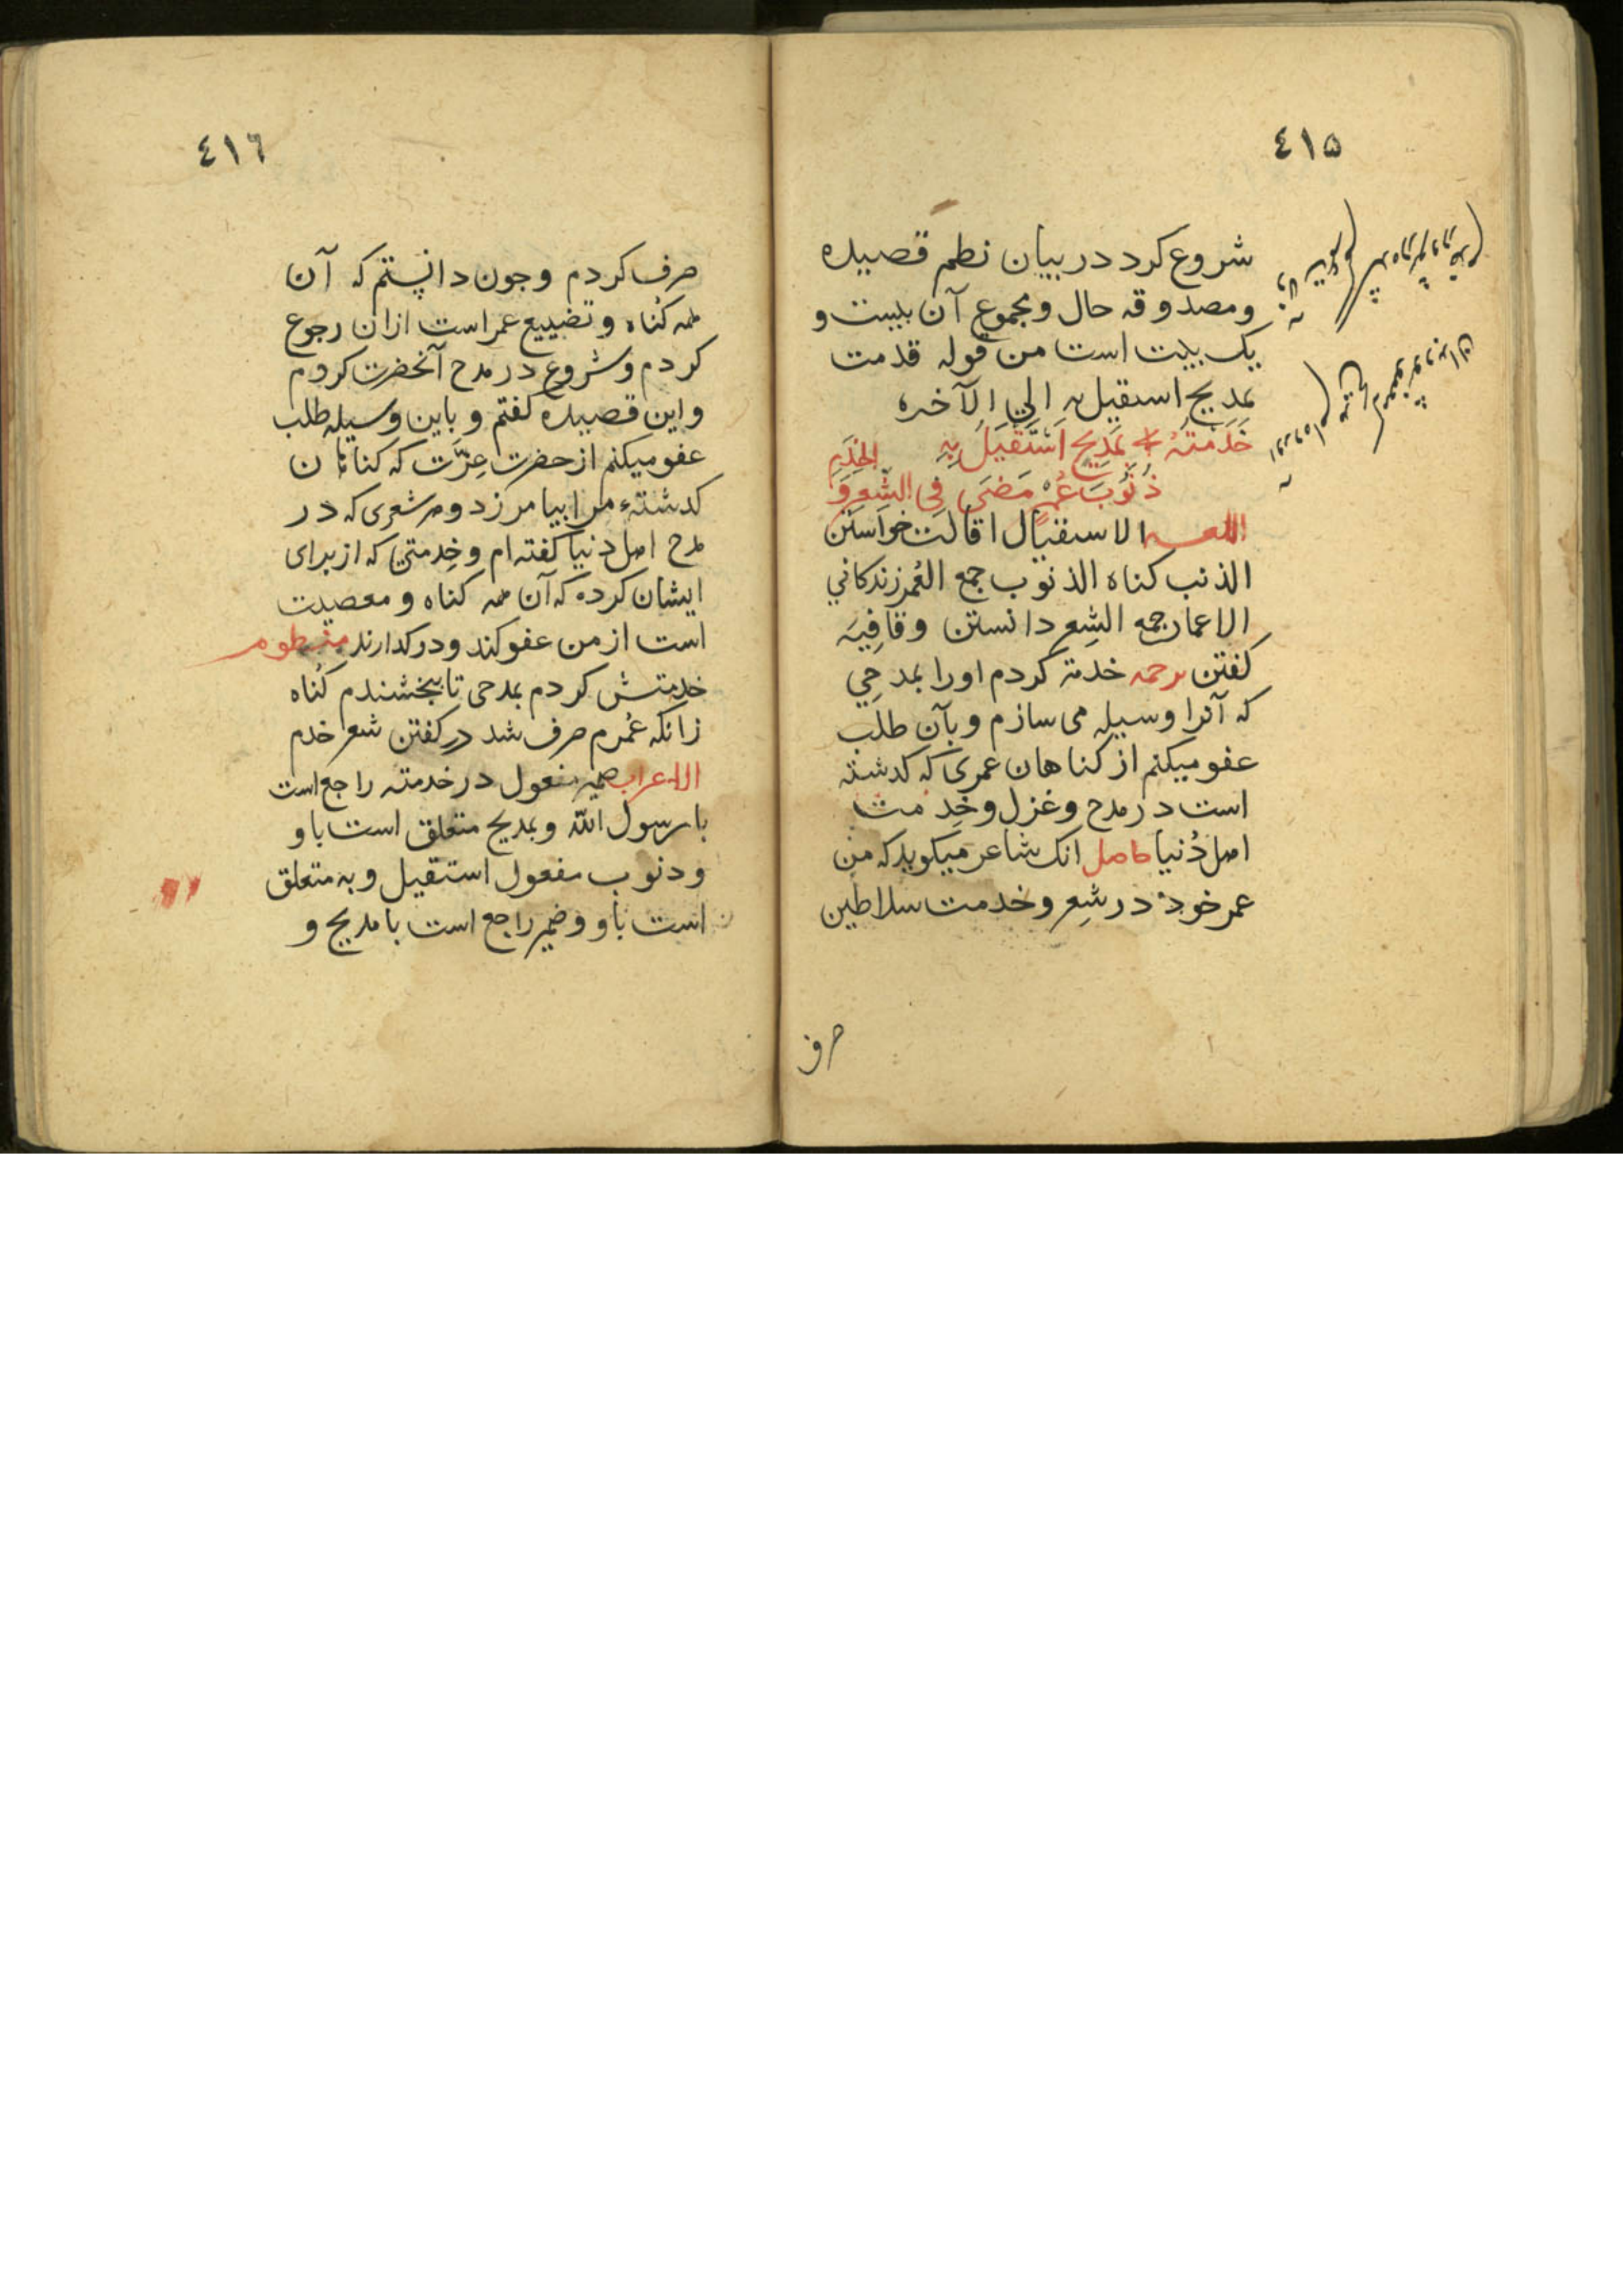 ٤١٥
شروع کرد در بیان نظم قصیده
ومصدوقه حال ومجموع آن بیست و
یک بیت است من قوله قدمت
بمدیح استقیل به الی الآخره
خَدَمتُهُ بمَدِیحٍ اَسْتَقیلُ بِهِ
ذُنُوبَ عُمْرٍ مَضَی فِی الشِّعرِ وَ الخِدَمِ
اللغه الاستقیال اقالت خواستن
الذنب کناه الذنوب جمع العُمر زندکانی
الاعمار جمه الشِعر دانستن وقافِیَه
کفتن ترجمه خدمة کردم اورا بمدحِی
که آنرا وسیله می سازم وبآن طلب
عفو میکنم از کناهان عمری که کدشته
است در مدح وغزل وخِدمت
اهل دُنیا حاصل انک شاعر میکوید که من
عمر خود در شِعر وخدمت سلاطین
صرف
٤١٦
صرف کردم وجون دانستم که آن
همه کُناه وتضییع عمر است ازان رجوع
کردم وشروع در مدح آنحضرت کردم
واین قصیده کفتم وباین وسیله طلب
عفو میکنم از حضرت عِزَّت که کناهان
کدشتهء مرا بیامرزد وهر شعری که در
مدح اهل دنیا کفته ام وخِدمتی که از برای
ایشان کرده که آن همه کناه ومعصیت
است از من عفو کند ودر کدارند منظوم
خدمتش کردم بمدحی تا ببخشندم کُناه
زانکه عُمرم صرف شد در کفتن شعر خدم
الاعراب ضمیر مفعول در خدمته راجع است
با رسول الله وبمدیح متعلق است باو
وذنوب مفعول استقیل وبه متعلق
است باو وضمیر راجع است با مدیح و